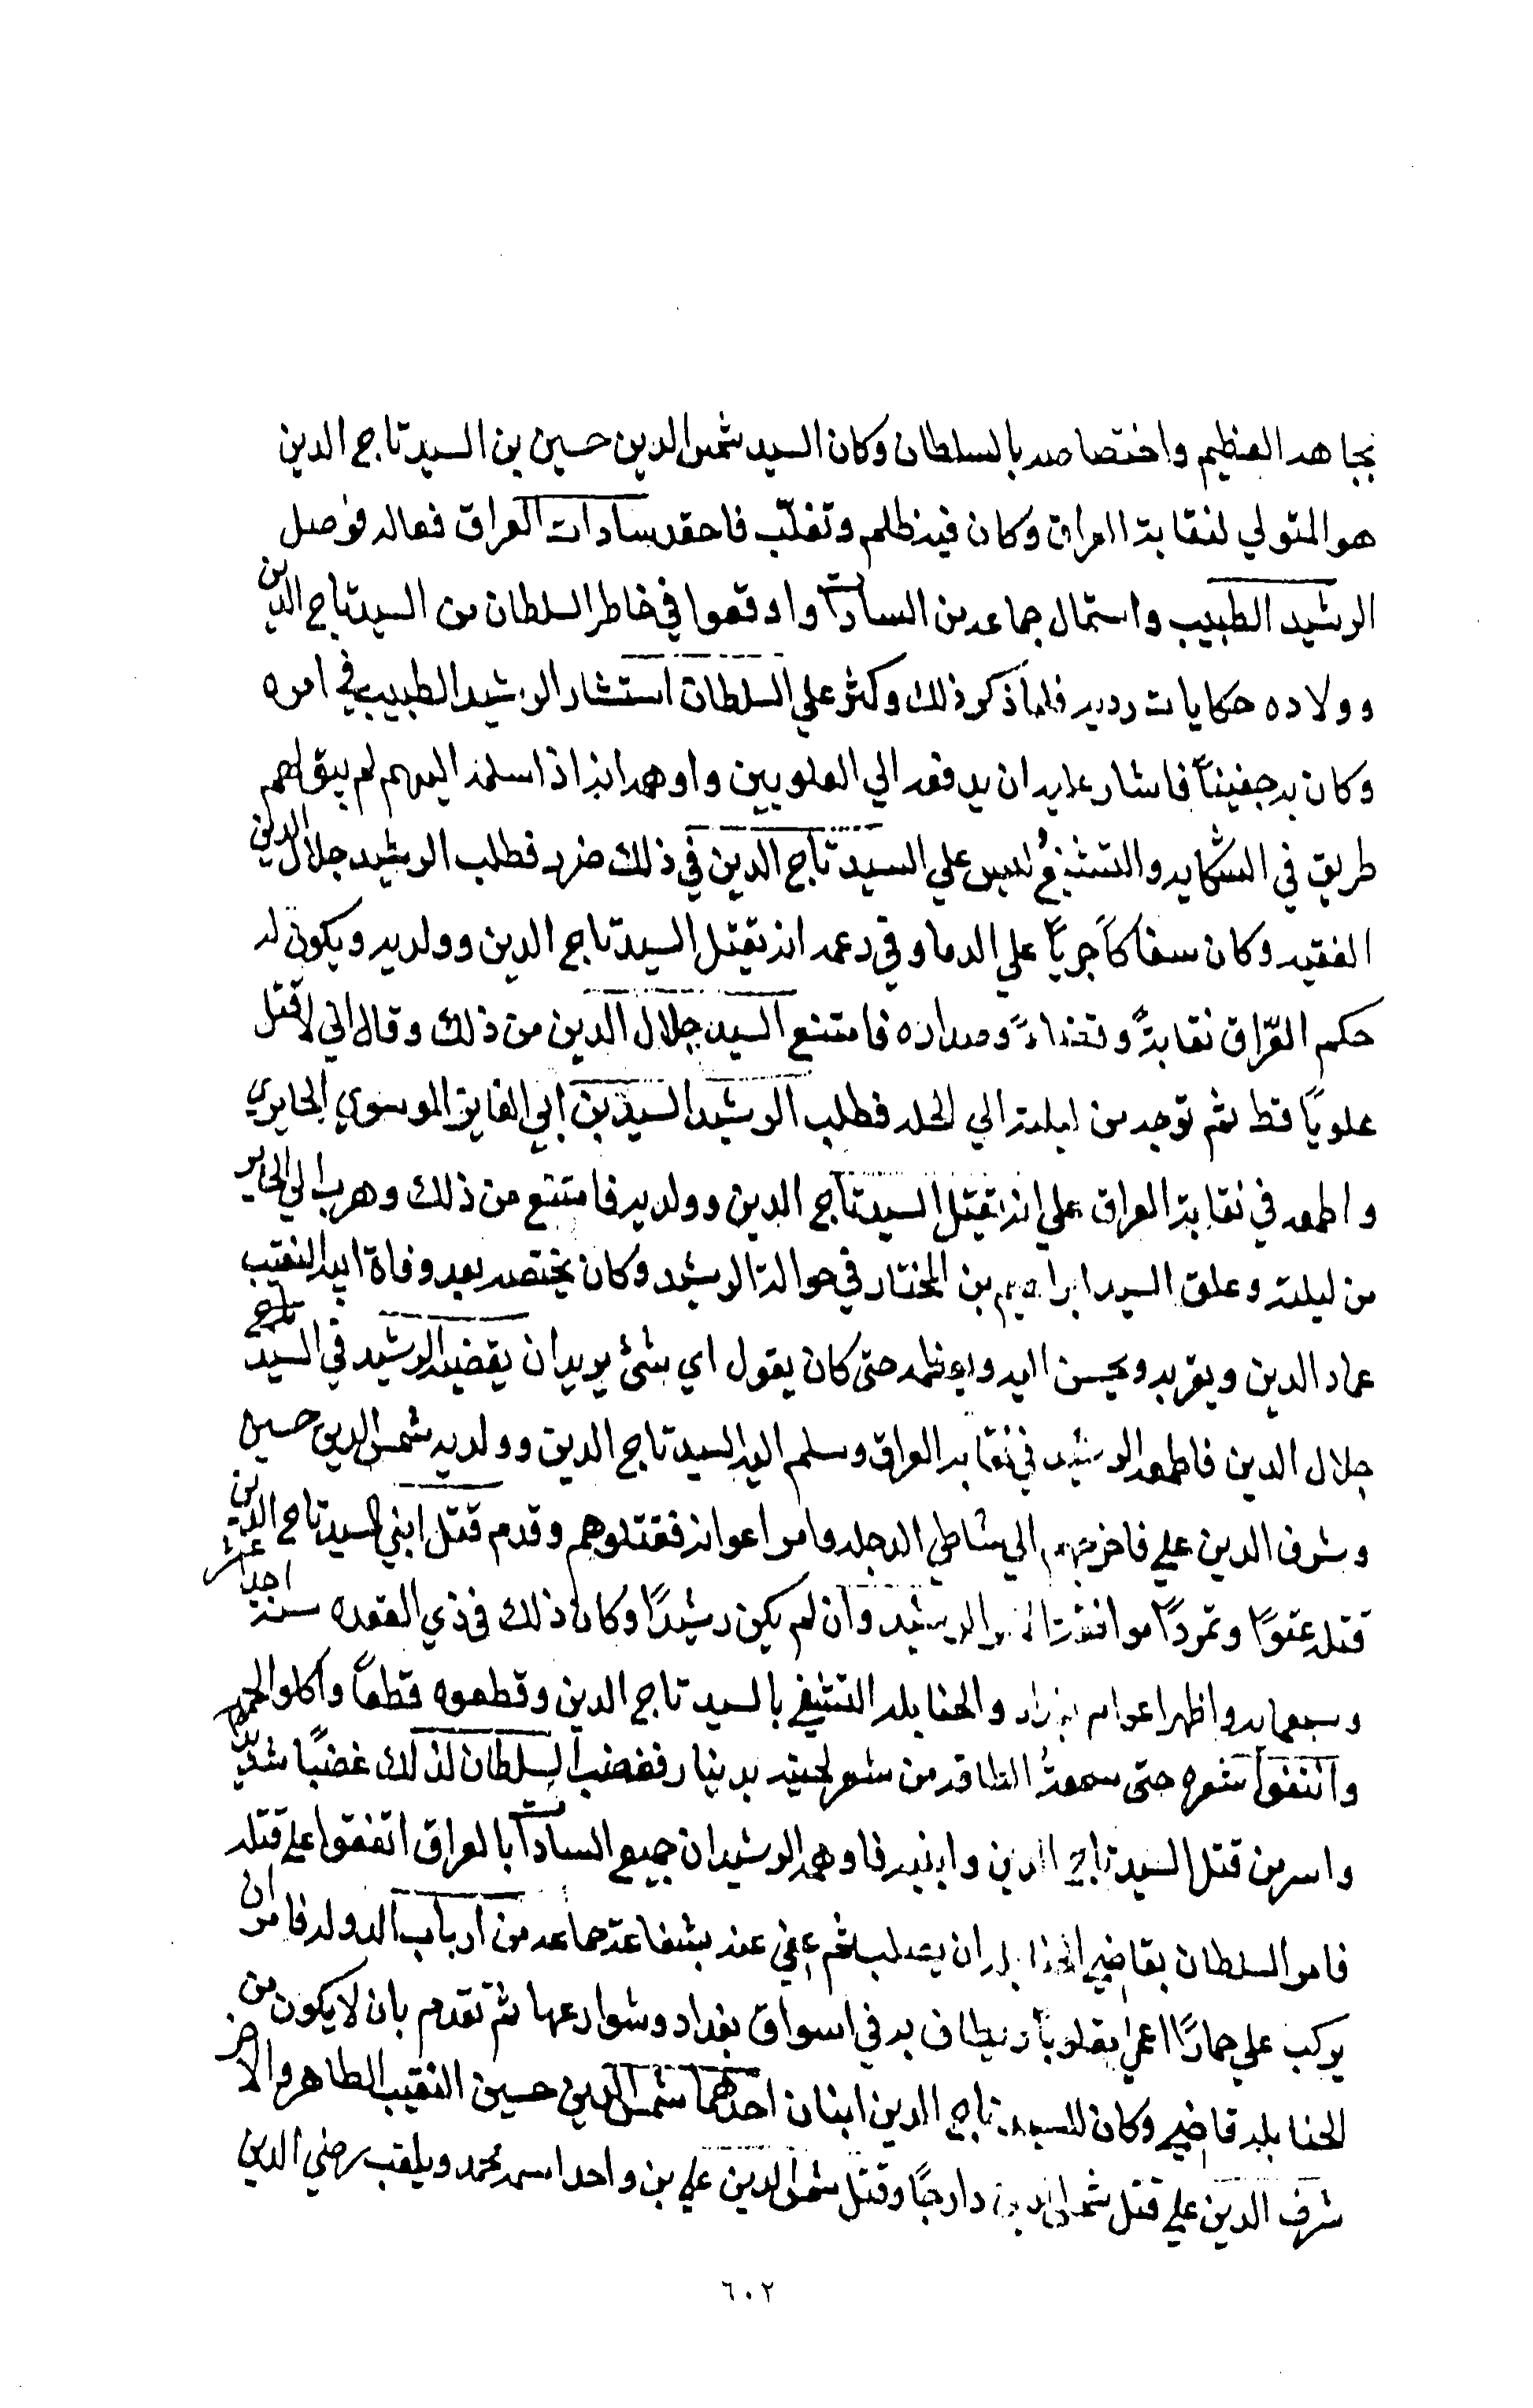 بجاهه العظيم واختصاصه بالسلطان وكان السيد شمس الدين حسين بن السيد تاج الدين
هو المتولي لنقابة العراق وكان فيه ظلم وتغلّب فاحقد سادات العراق فعاله فوصل
الرشيد الطبيب واستمال جماعه من السادات واوقعوا في خاطر السلطان من السيد تاج الدين
وولاده حكايات رديه فلما ذكر ذلك وكثر علي السلطان استشار الرشيد الطبيب في امره
وكان به حفيناً فاشار عليه ان يدفعه الي العلويين واوهمه انه اذا سلمه اليهم لم يبق لهم
طريق في الشكايه والتشنيع وليس علي السيد تاج الدين في ذلك ضرر فطلب الرشيد جلال الدين
الفقيه وكان سفاكاً جرياً علي الدما وقرر عمه انه يقتل السيد تاج الدين وولديه ويكون له
حكم العراق نقابةً وقضاءً وصداره فامتنع السيد جلال الدين من ذلك وقال اني لا اقتل
علوياً قط ثم توجه من ليلته الي الحله فطلب الرشيد السيد بن ابي الفايز الموسوي الحايري
واطمعه في نقابة العراق علي انه يقتل السيد تاج الدين وولديه فامتنع من ذلك وهرب الي الحاير
من ليلته وعلق السيد ابراهيم بن المختار في حوالة الرشيد وكان يختصه بعد وفاة ابيه النقيب
عماد الدين ويقربه ويحسن اليه ويعظمه حتى كان يقول اي شئ يريد ان يقضيه الرشيد في السيد تاج
جلال الدين فاطمعه الرشيد في نقابه العراق وسلم اليه السيد تاج الدين وولديه شمس الدين حسين
وشرف الدين علي فاخرجهم الي شاطي الدجله وامر اعوانه فقتلوهم وقدم قتل ابني السيد تاج الدين
قتله عتوًا وتمردًا موافقة الرشيد وان لم يكن رشيدًا وكان ذلك في ذي القعده سنة احدا عشر
وسبعمايه واظهر اعوام بغداد والحنابله التشفي بالسيد تاج الدين وقطعوه قطعاً واكلوا لحمه
وانتفوا شعره حتى بيعت الطاقه من شعر لحيته بدينار فغضب السلطان لذلك غضبًا شديدًا
واسر من قتل السيد تاج الدين وابنيه فاوهمه الرشيد ان جميع السادات بالعراق اتفقوا علي قتله
فامر السلطان بقاضي الحنابله ان يصلب ثم عفي عنه بشفاعة جماعه من ارباب الدوله فامر ان
يركب علي حمارًا اعمي مقلوباً ويطاف به في اسواق بغداد وشوارعها ثم تقدم بان لا يكون من
الحنابله قاضي وكان للسيد تاج الدين ابنان احدهما شمس الدين حسين النقيب الطاهر والاخر
شرف الدين علي قتل شمس الدين دارجًا وقتل شمس الدين علي بن واحد اسمه محمد ويلقب رضي الدين
٦٠٢